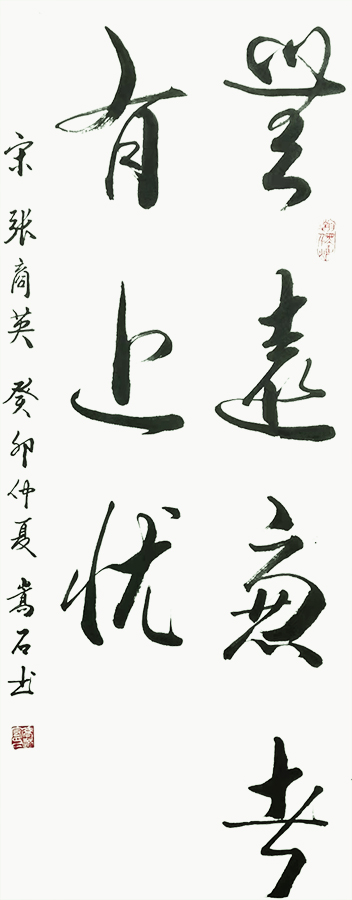 無遠慮者
有近忧
宋 張商英 癸卯仲夏 嵩石书